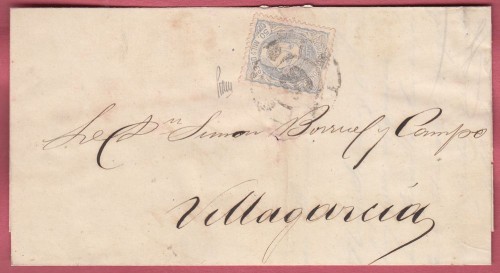 Sr Dn Simon Borruel y Campo
Villagarcía